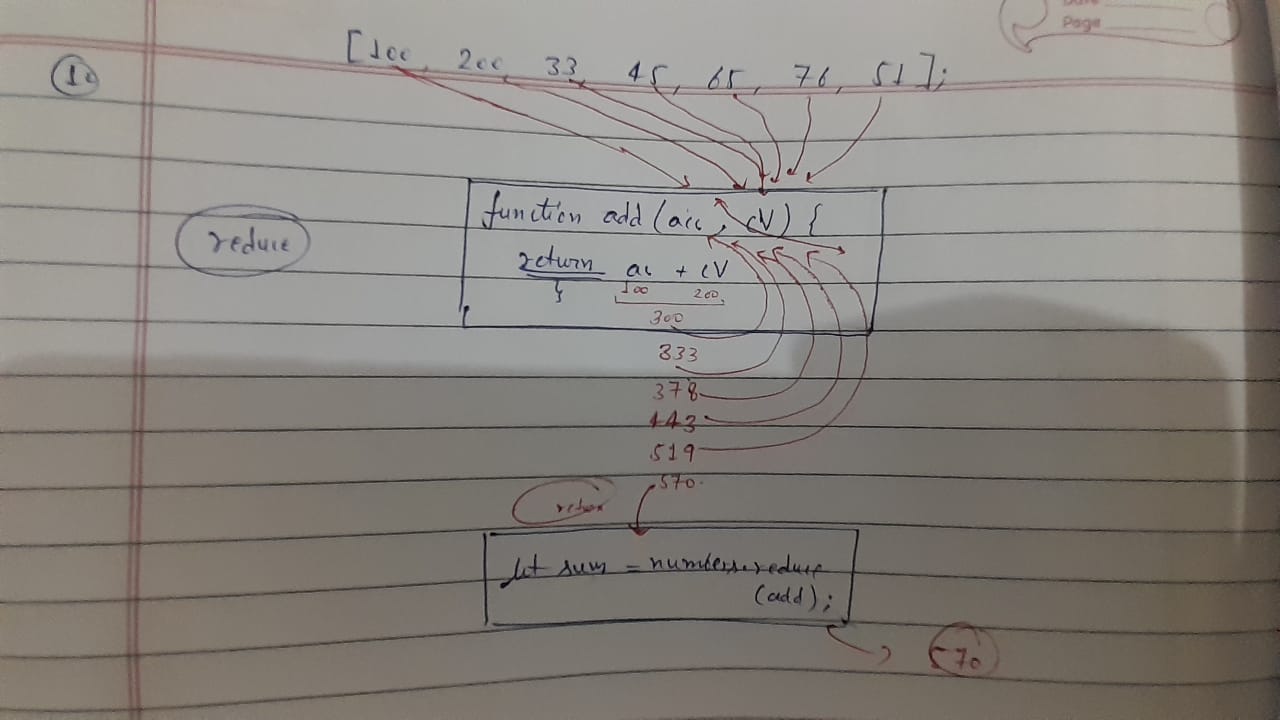 Page
1.
[100, 200, 33, 45, 65, 76, 51];
reduce
function add (acc, cV) {
return ac + cV
}
100 200
300
333
378
443
519
570
return
let sum = numbers.reduce
(add);
570